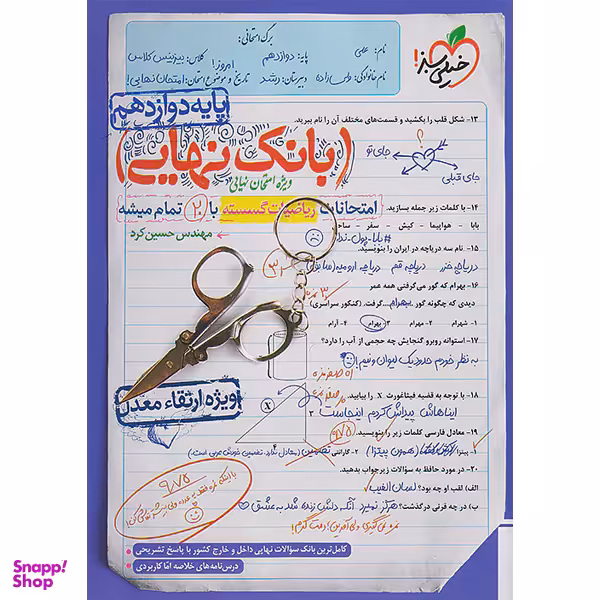 برگ امتحانی:
نام: علی
پایه: دوازدهم
کلاس: بیزینس کلاس
نام خانوادگی:
دبیرستان: رشد
تاریخ و موضوع امتحان: امروز! امتحان نهایی!
خیلی سبز!
پایه دوازدهم
(بانک نهایی)
ویژه امتحان نهایی
امتحانات ریاضیات گسسته با ۲۰ تمام میشه
مهندس حسین کرد
۱۳- شکل قلب را بکشید و قسمت‌های مختلف آن را نام ببرید.
جای تو
جای قبلی
۱۴- با کلمات زیر جمله بسازید.
بابا - هواپیما - کیش - سفر - ساحل
#بابا_پول_نداره
۱۵- نام سه دریاچه در ایران را بنویسید.
دریاچه خزر دریاچه قم دریاچه ارومیه (سابق)
۱۶- بهرام که گور می‌گرفتی همه عمر
دیدی که چگونه گور بهرام گرفت. (کنکور سراسری)
۱- شهرام ۲- مهرام ۳- بهرام ۴- آرام
۱۷- استوانه روبرو گنجایش چه حجمی از آب را دارد؟
به نظر خودم حدود یک لیوان و نیم!
ویژه ارتقاء معدل
۱۸- با توجه به قضیه فیثاغورث X را بیابید.
ایناهاش پیداش کردم اینجاست
X
۳
۴
۱۹- معادل فارسی کلمات زیر را بنویسید.
۱- پیتزا (همون پیتزا) ۲- گارانتی تضمین
۲۰- در مورد حافظ به سؤالات زیر جواب بدهید.
الف) لقب او چه بود؟ لسان الغیب
ب) در چه قرنی درگذشت؟ هرگز نمیرد آنکه دلش زنده شد به عشق
نمره نمی‌گیری ولی آفرین!
۹/۷۵
کامل‌ترین بانک سوالات نهایی داخل و خارج کشور با پاسخ تشریحی
درس‌نامه‌های خلاصه امّا کاربردی
Snapp!
Shop